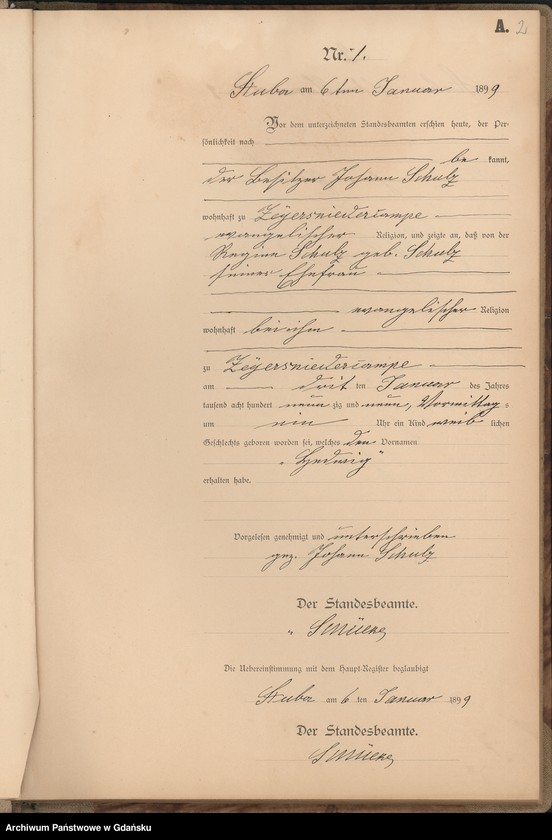 A. 2
Nr. 1.
Stuba am 6ten Januar 1899
Vor dem unterzeichneten Standesbeamten erschien heute, der Per-
sönlichkeit nach
be kannt,
der Besitzer Johann Schulz
wohnhaft zu Zeyersniedercampe
evangelischer Religion, und zeigte an, daß von der
Regine Schulz geb. Schulz
seiner Ehefrau
evangelischer Religion
wohnhaft bei ihm
zu Zeyersniedercampe
am drit ten Januar des Jahres
tausend acht hundert neun zig und neun, Vormittag s
um ein Uhr ein Kind weib lichen
Geschlechts geboren worden sei, welches den Vornamen
„Hedwig"
erhalten habe.
Vorgelesen genehmigt und unterschrieben
gez. Johann Schulz
Der Standesbeamte.
"
Die Uebereinstimmung mit dem Haupt-Register beglaubigt
Stuba am 6 ten Januar 1899
Der Standesbeamte.
Archiwum Państwowe w Gdańsku